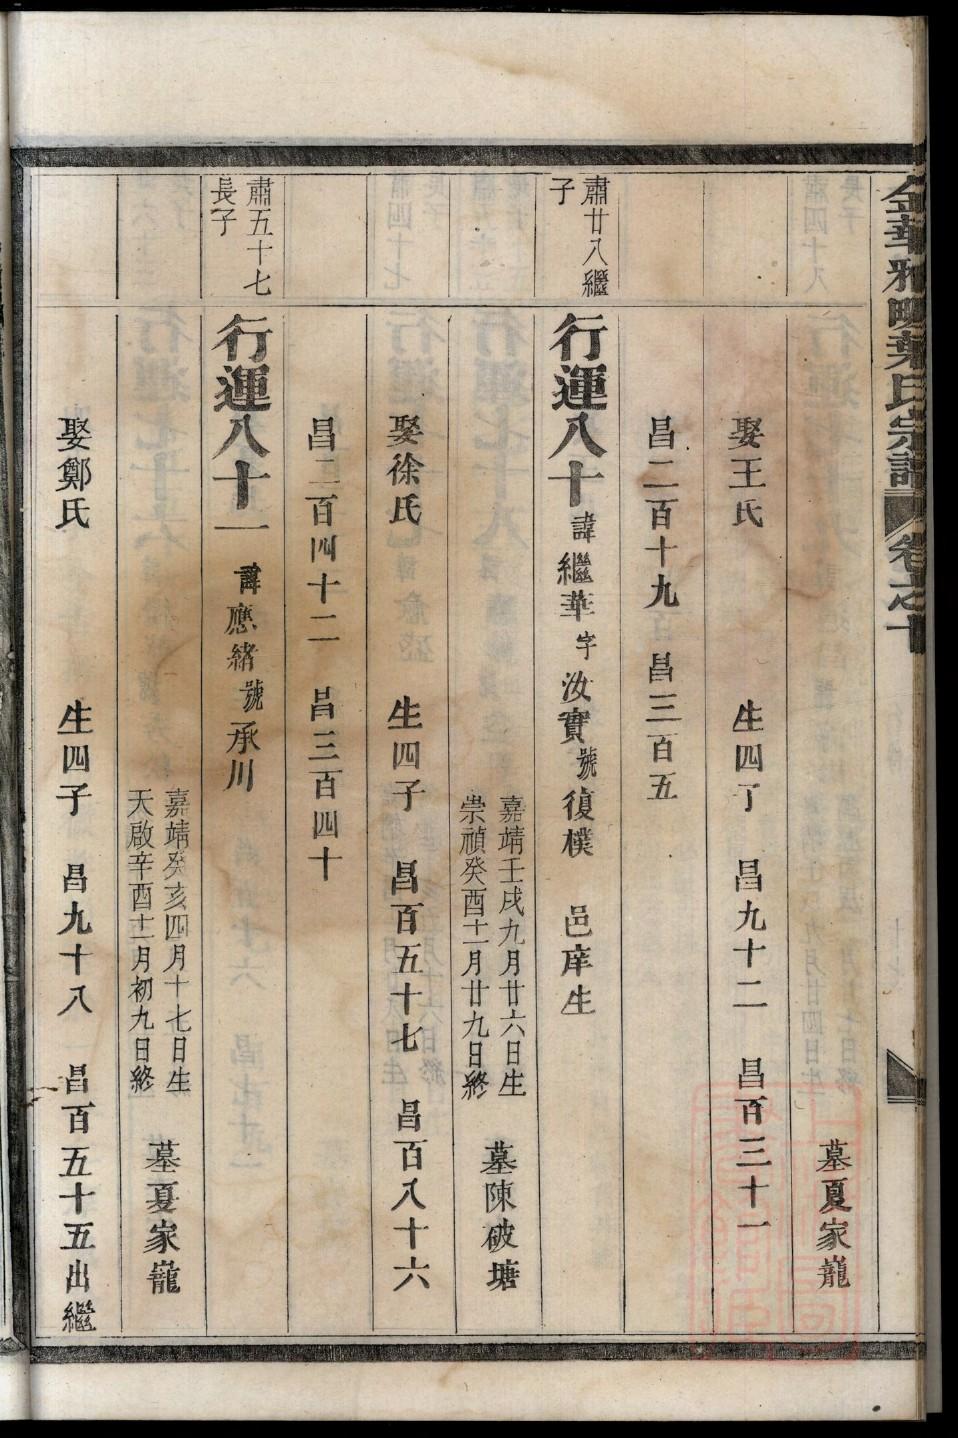 金華雅畈葉氏宗譜 卷之十
墓夏家巃
娶王氏 生四丁 昌九十二 昌百三十一
昌二百十九 昌三百五
肅廿八繼子
行運八十 諱繼華 字汝實 號復樸 邑庠生
嘉靖壬戌九月廿六日生
崇禎癸酉十一月廿九日終
墓陳破塘
娶徐氏 生四子 昌百五十七 昌百八十六
昌二百四十二 昌三百四十
肅五十七長子
行運八十一 諱應緒 號承川
嘉靖癸亥四月十七日生
天啟辛酉十二月初九日終
墓夏家巃
娶鄭氏 生四子 昌九十八 昌百五十五出繼